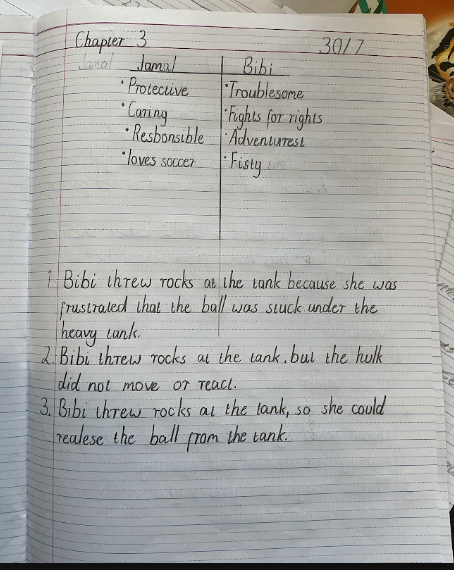 Chapter 3 30/7
Jamal Jamal Bibi
· Protective · Troublesome
· Caring · Fights for rights
· Resbonsible · Adventurest
· loves soccer · Fisty
1. Bibi threw rocks at the tank because she was
frustrated that the ball was stuck under the
heavy tank.
2. Bibi threw rocks at the tank, but the hulk
did not move or react.
3. Bibi threw rocks at the tank, so she could
realese the ball from the tank.